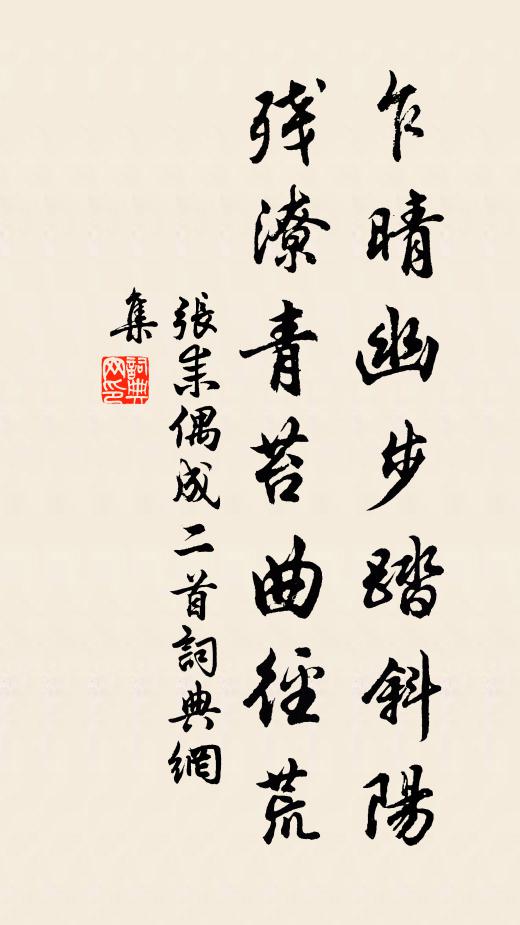 乍晴幽步踏斜陽
残潦青苔曲徑荒
張耒偶成二首詞典網
集
詞典
网印